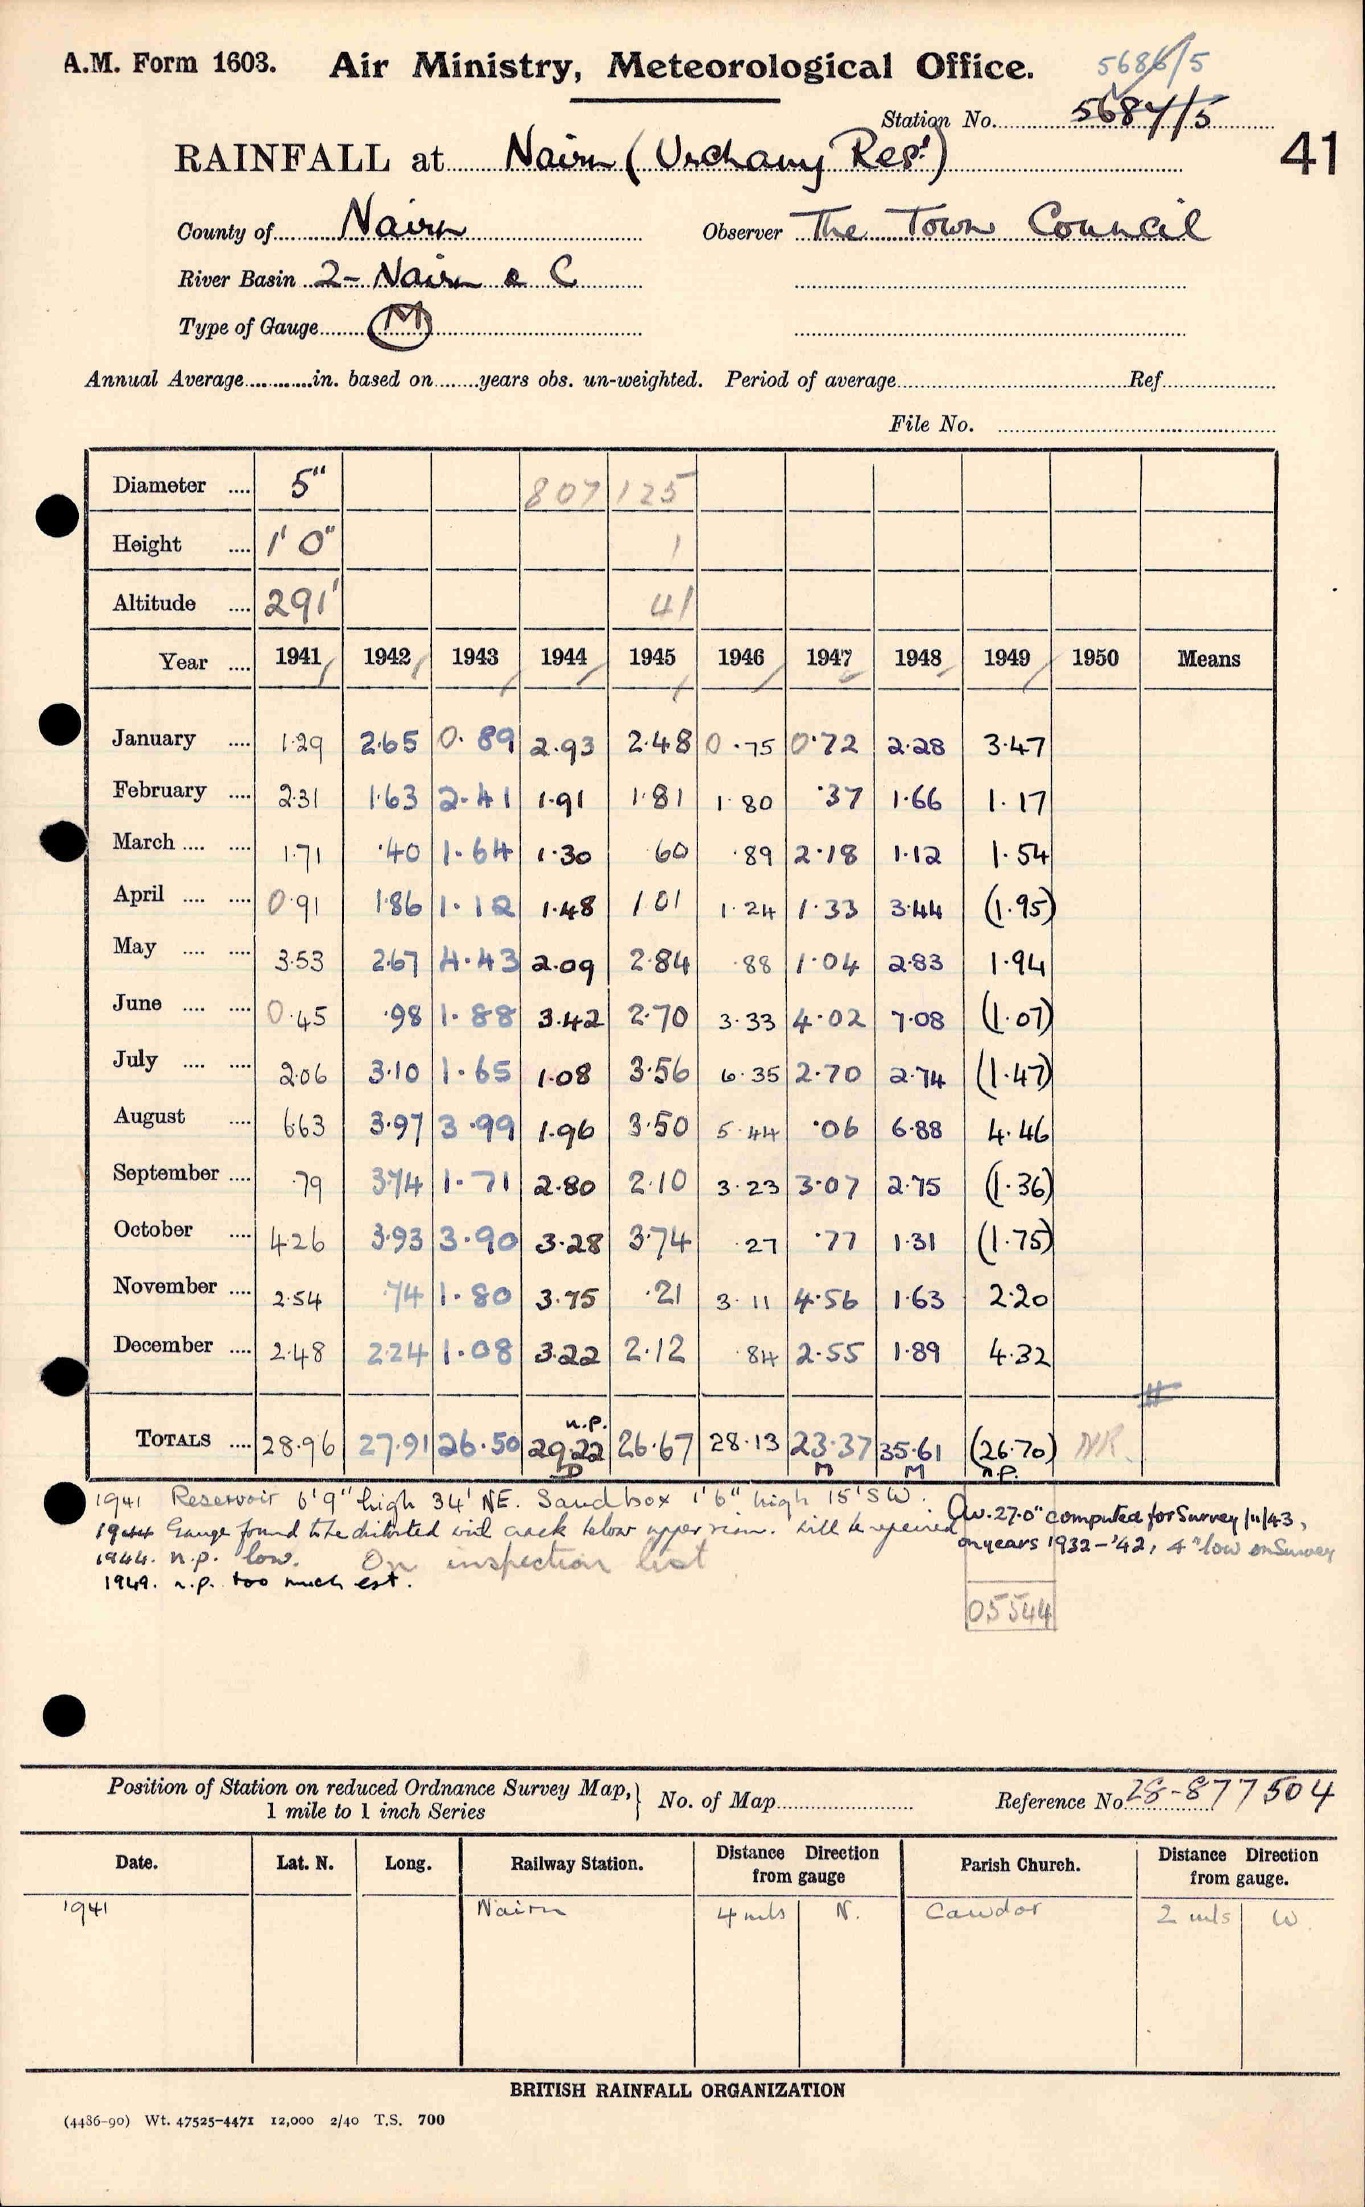 A.M. Form 1603. Air Ministry, Meteorological Office. 5686/5
Station No. 5687/5
41
RAINFALL at Nairn (Urchany Resr)
County of Nairn Observer The Town Council
River Basin 2- Nairn & C
Type of Gauge M
Annual Average in. based on years obs. un-weighted. Period of average Ref.
File No.
Diameter 5" 807 125
Height 1' 0" 1
Altitude 291' 41
Year 1941 1942 1943 1944 1945 1946 1947 1948 1949 1950 Means
January 1.29 2.65 0.89 2.93 2.48 0.75 0.72 2.28 3.47
February 2.31 1.63 2.41 1.91 1.81 1.80 .37 1.66 1.17
March 1.71 .40 1.64 1.30 .60 .89 2.18 1.12 1.54
April 0.91 1.86 1.12 1.48 1.01 1.24 1.33 3.44 (1.95)
May 3.53 2.67 4.43 2.09 2.84 .88 1.04 2.83 1.94
June 0.45 .98 1.88 3.42 2.70 3.33 4.02 7.08 (1.07)
July 2.06 3.10 1.65 1.08 3.56 6.35 2.70 2.74 (1.47)
August 6.63 3.97 3.99 1.96 3.50 5.44 .06 6.88 4.46
September .79 3.74 1.71 2.80 2.10 3.23 3.07 2.75 (1.36)
October 4.26 3.93 3.90 3.28 3.74 .27 .77 1.31 (1.75)
November 2.54 .74 1.80 3.75 .21 3.11 4.56 1.63 2.20
December 2.48 2.24 1.08 3.22 2.12 .84 2.55 1.89 4.32
n.p.
TOTALS 28.96 27.91 26.50 29.22 26.67 28.13 23.37 35.61 (26.70) NR.
D M M n.p.
1941 Reservoir 6'9" high 34' NE. Sandbox 1'6" high 15' SW.
1944 Gauge found to be distorted with crack below upper rim. Will be repaired
Av. 27.0" computed for Survey 1/11/43,
on years 1932-'42, 4" low on Survey
1944. n.p. low. On inspection list
1949. n.p. too much est.
05544
Position of Station on reduced Ordnance Survey Map, 1 mile to 1 inch Series No. of Map Reference No 28-877504
Date. Lat. N. Long. Railway Station. Distance from gauge Direction Parish Church. Distance from gauge. Direction
1941 Nairn 4 mls N. Cawdor 2 mls W.
BRITISH RAINFALL ORGANIZATION
(4486-90) Wt. 47525-4471 12,000 2/40 T.S. 700